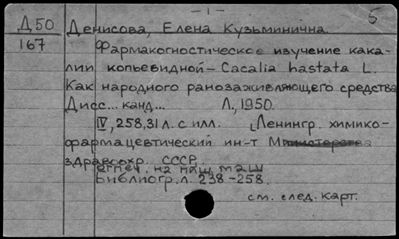 - 1 -
5
Д50 Денисова, Елена Кузьминична
167 Фармакогностическое изучение кака-
лии копьевидной - Cacalia hastata L.
Как народного ранозаживляющего средства
Дисс... канд... Л, 1950.
IV, 258,31 л. с илл. Ленингр. химико-
фармацевтический ин-т Министерства
здравоохр. СССР.
отпеч. на пиш маш
Библиогр. л. 238-258.
см. след. карт.